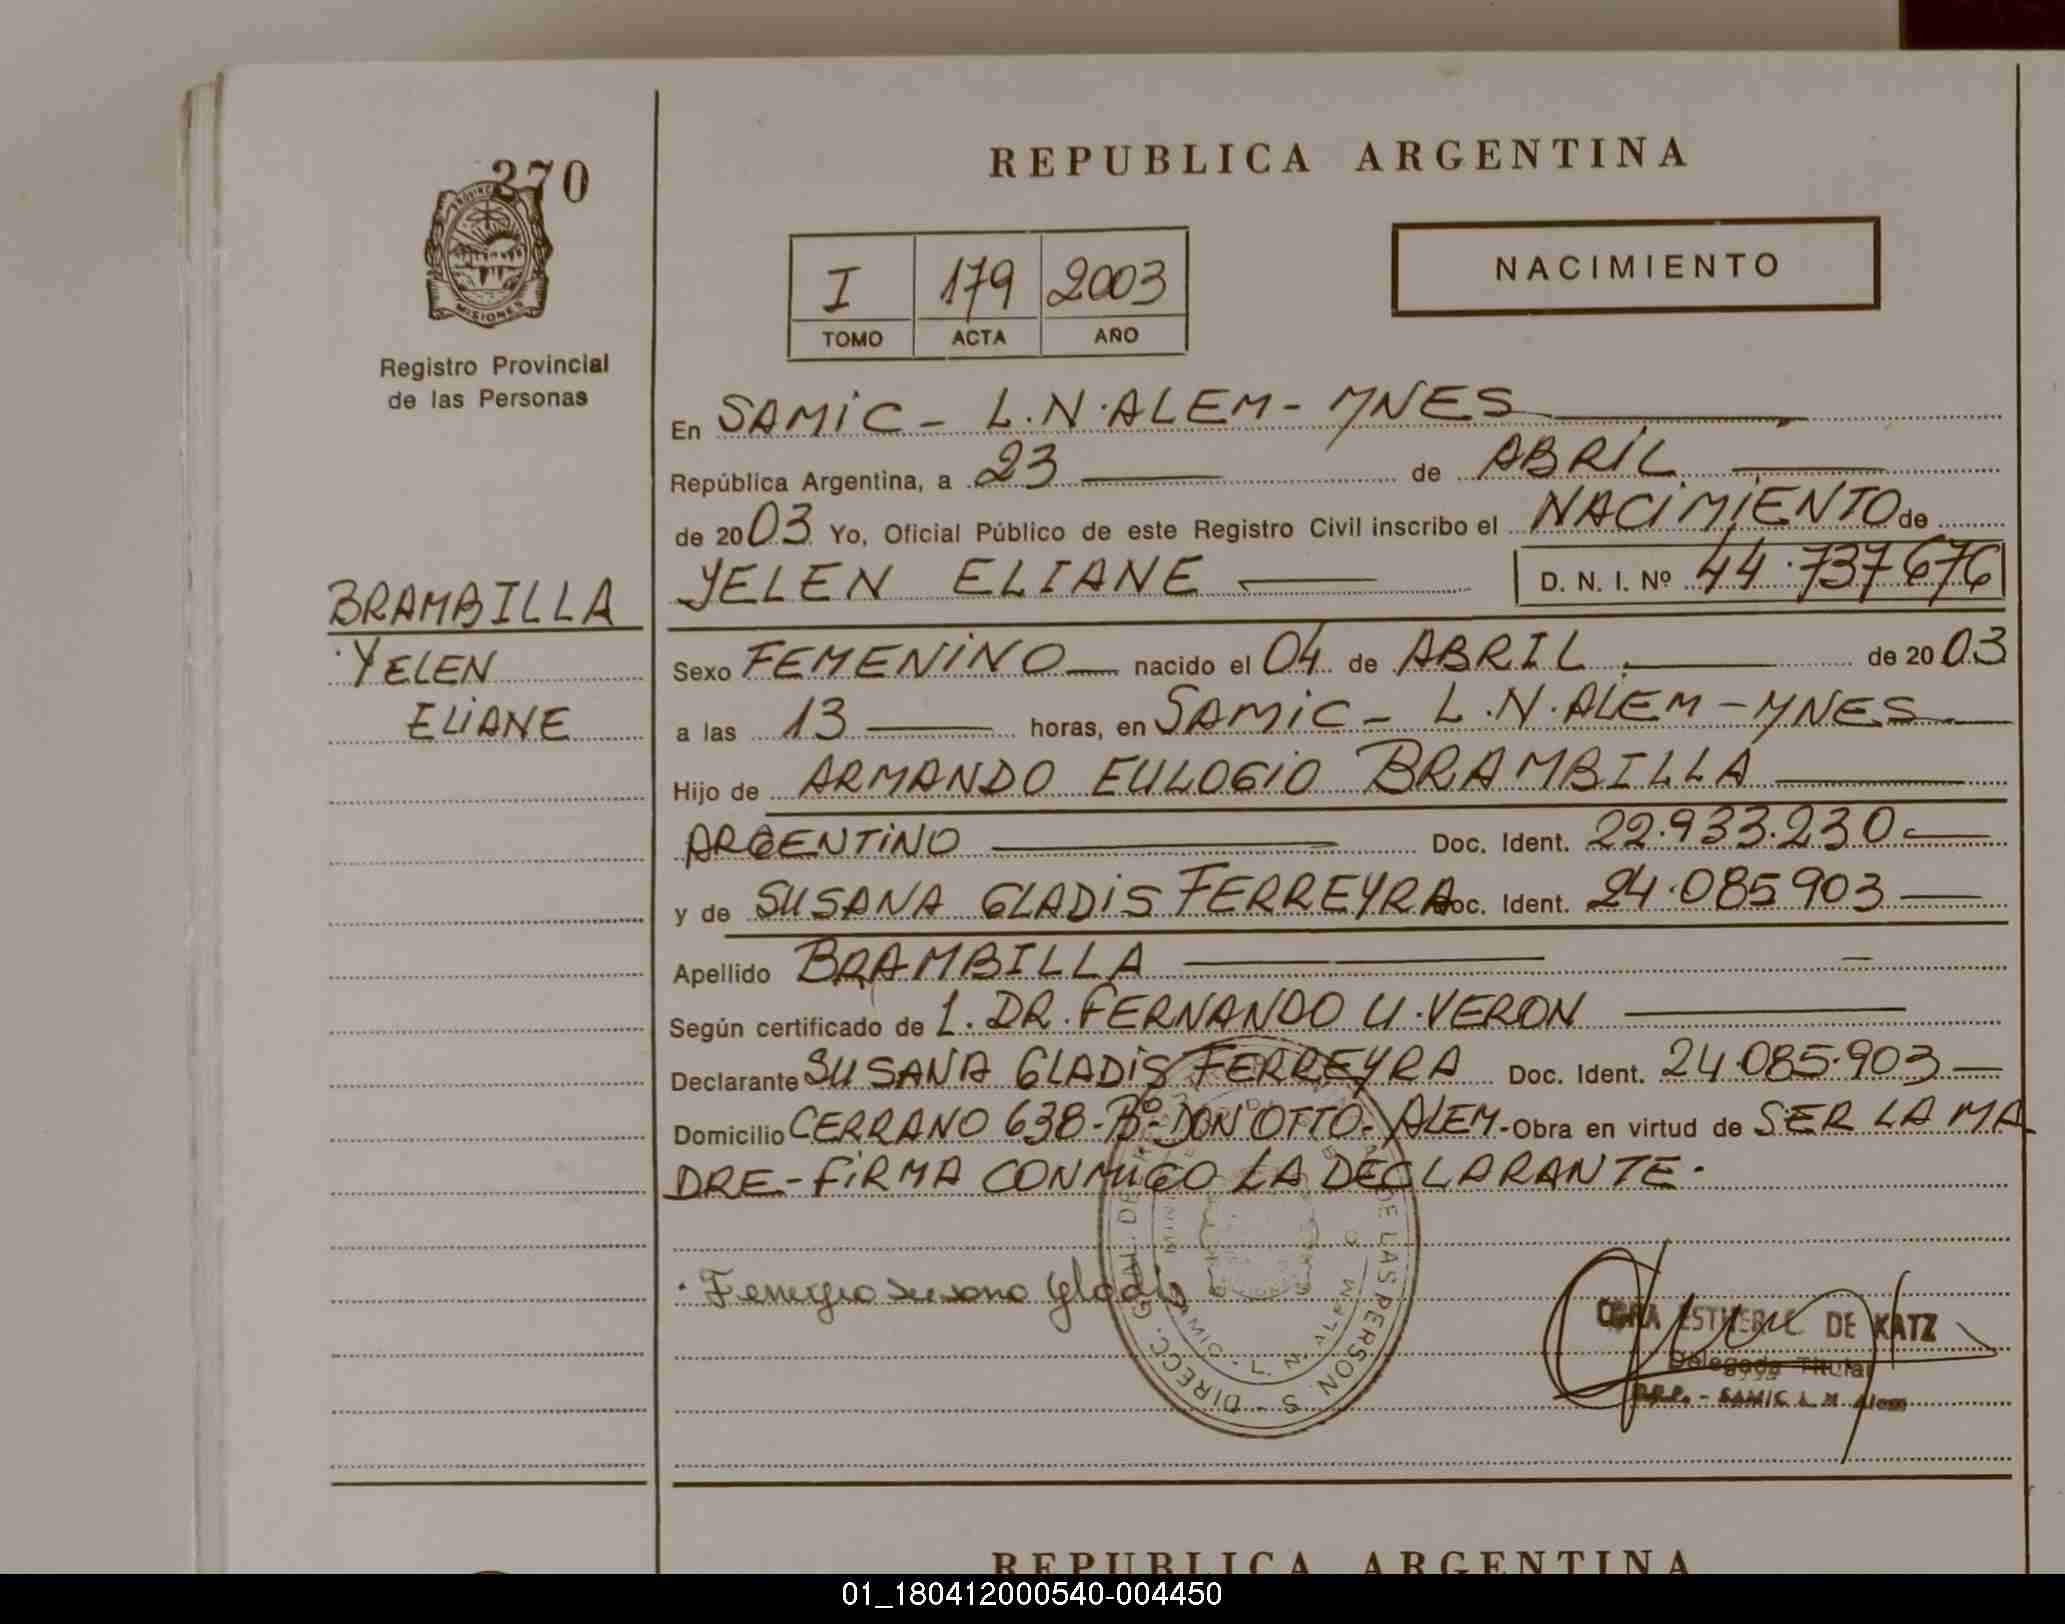 270
PROVINCIA
MISIONES
Registro Provincial
de las Personas
REPUBLICA ARGENTINA
NACIMIENTO
I 179 2003
TOMO ACTA AÑO
En SAMIC - L.N. ALEM - MNES
República Argentina, a 23 de ABRIL
de 2003 Yo, Oficial Público de este Registro Civil inscribo el NACIMIENTO de
YELEN ELIANE D. N. I. Nº 44.737676
BRAMBILLA
YELEN
ELIANE
Sexo FEMENINO nacido el 04 de ABRIL de 2003
a las 13 horas, en SAMIC - L.N. ALEM - MNES
Hijo de ARMANDO EULOGIO BRAMBILLA
ARGENTINO Doc. Ident. 22.933.230
y de SUSANA GLADIS FERREYRA Doc. Ident. 24.085903
Apellido BRAMBILLA
Según certificado de L. DR. FERNANDO U. VERON
Declarante SUSANA GLADIS FERREYRA Doc. Ident. 24.085.903
Domicilio CERRANO 638 - Bº DON OTTO - ALEM - Obra en virtud de SER LA MA
DRE - FIRMA CONMIGO LA DECLARANTE.
Ferreyra Susana Gladis
DIRECC. GRAL. DE LAS PERSON. S
SAMIC - L. N. ALEM
ESTHER DE KATZ
Delegada Titular
R.P.P. - SAMIC L. N. Alem
REPUBLICA ARGENTINA
01_180412000540-004450